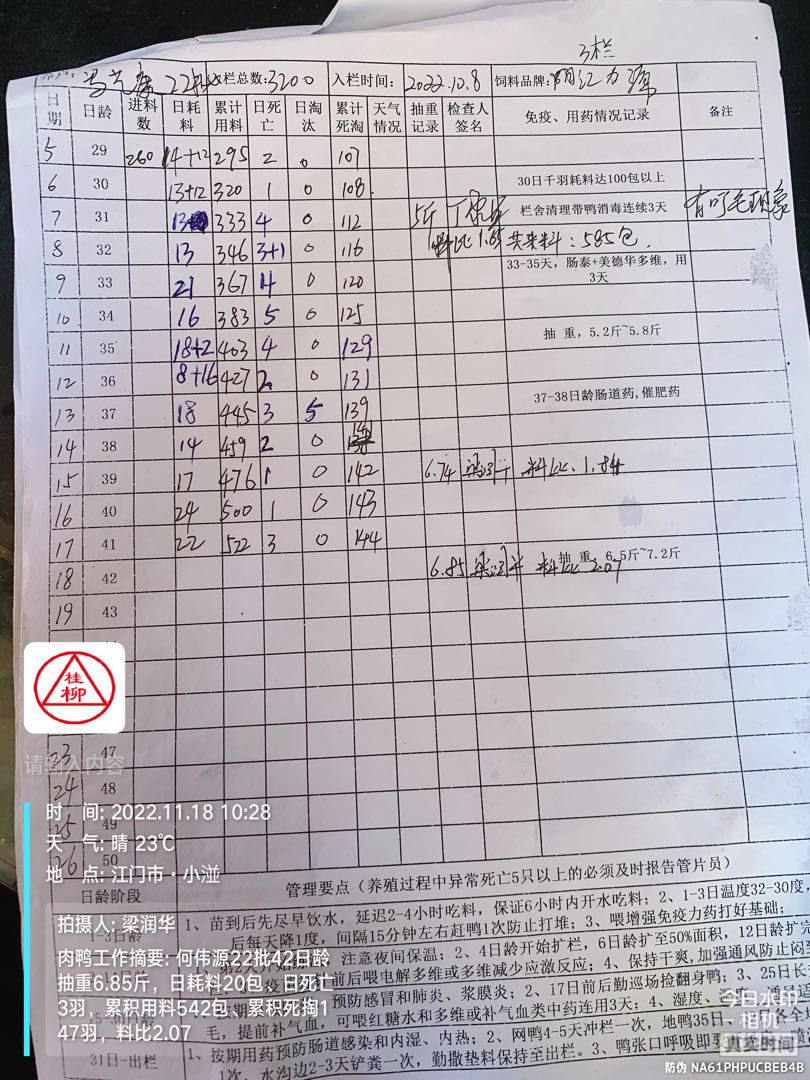 3栏
22批 入栏总数:3200 入栏时间: 2022.10.8 饲料品牌:
日期 日龄 进料数 日耗料 累计用料 日死亡 日淘汰 累计死淘 天气情况 抽重记录 检查人签名 免疫、用药情况记录 备注
5 29 260 14+12 295 2 0 107
6 30 13+12 320 1 0 108 30日千羽耗料达100包以上
7 31 13 333 4 0 112 5斤 栏舍清理带鸭消毒连续3天 有叼毛现象
8 32 13 346 3+1 0 116 料比1.85 共来料:585包.
9 33 21 367 4 0 120 33-35天,肠泰+美德华多维,用3天
10 34 16 383 5 0 125
11 35 18+2 403 4 0 129 抽 重,5.2斤~5.8斤
12 36 8+16 427 2 0 131
13 37 18 445 3 5 139 37-38日龄肠道药,催肥药
14 38 14 459 2 0 141
15 39 17 476 1 0 142 6.74 料比1.84
16 40 24 500 1 0 143
17 41 22 522 3 0 144 抽 重 6.5斤~7.2斤
18 42 6.85 料比2.07
19 43
桂柳
23 47
请输入内容
24 48
25 49
26 50
时 间: 2022.11.18 10:28
天 气: 晴 23℃
地 点: 江门市·小溢
拍摄人: 梁润华
肉鸭工作摘要: 何伟源22批42日龄
抽重6.85斤,日耗料20包,日死亡
3羽,累积用料542包,累积死掏1
47羽,料比2.07
日龄阶段 管理要点(养殖过程中异常死亡5只以上的必须及时报告管片员)
1、苗到后先尽早饮水,延迟2-4小时吃料,保证6小时内开水吃料;2、1-3日温度32-30度,
后每天降1度,间隔15分钟左右赶鸭1次防止打堆;3、喂增强免疫力药打好基础;
注意夜间保温;2、4日龄开始扩栏,6日龄扩至50%面积,12日龄扩完
前后喂电解多维或多维减少应激反应;4、保持干爽,加强通风防止闷
预防感冒和肺炎、浆膜炎;2、17日前后勤巡场捡翻身鸭;3、25日长
毛,提前补气血,可喂红糖水和多维或补气血类中药连用3天;4、湿度、
31日-出栏 1、按期用药预防肠道感染和内湿、内热;2、网鸭4-5天冲栏一次,地鸭35日、
1次,水沟边2-3天铲粪一次,勤撒垫料保持至出栏。3、鸭张口呼吸即
今日水印
相机
真实时间
防伪 NA61PHPUCBEB4B